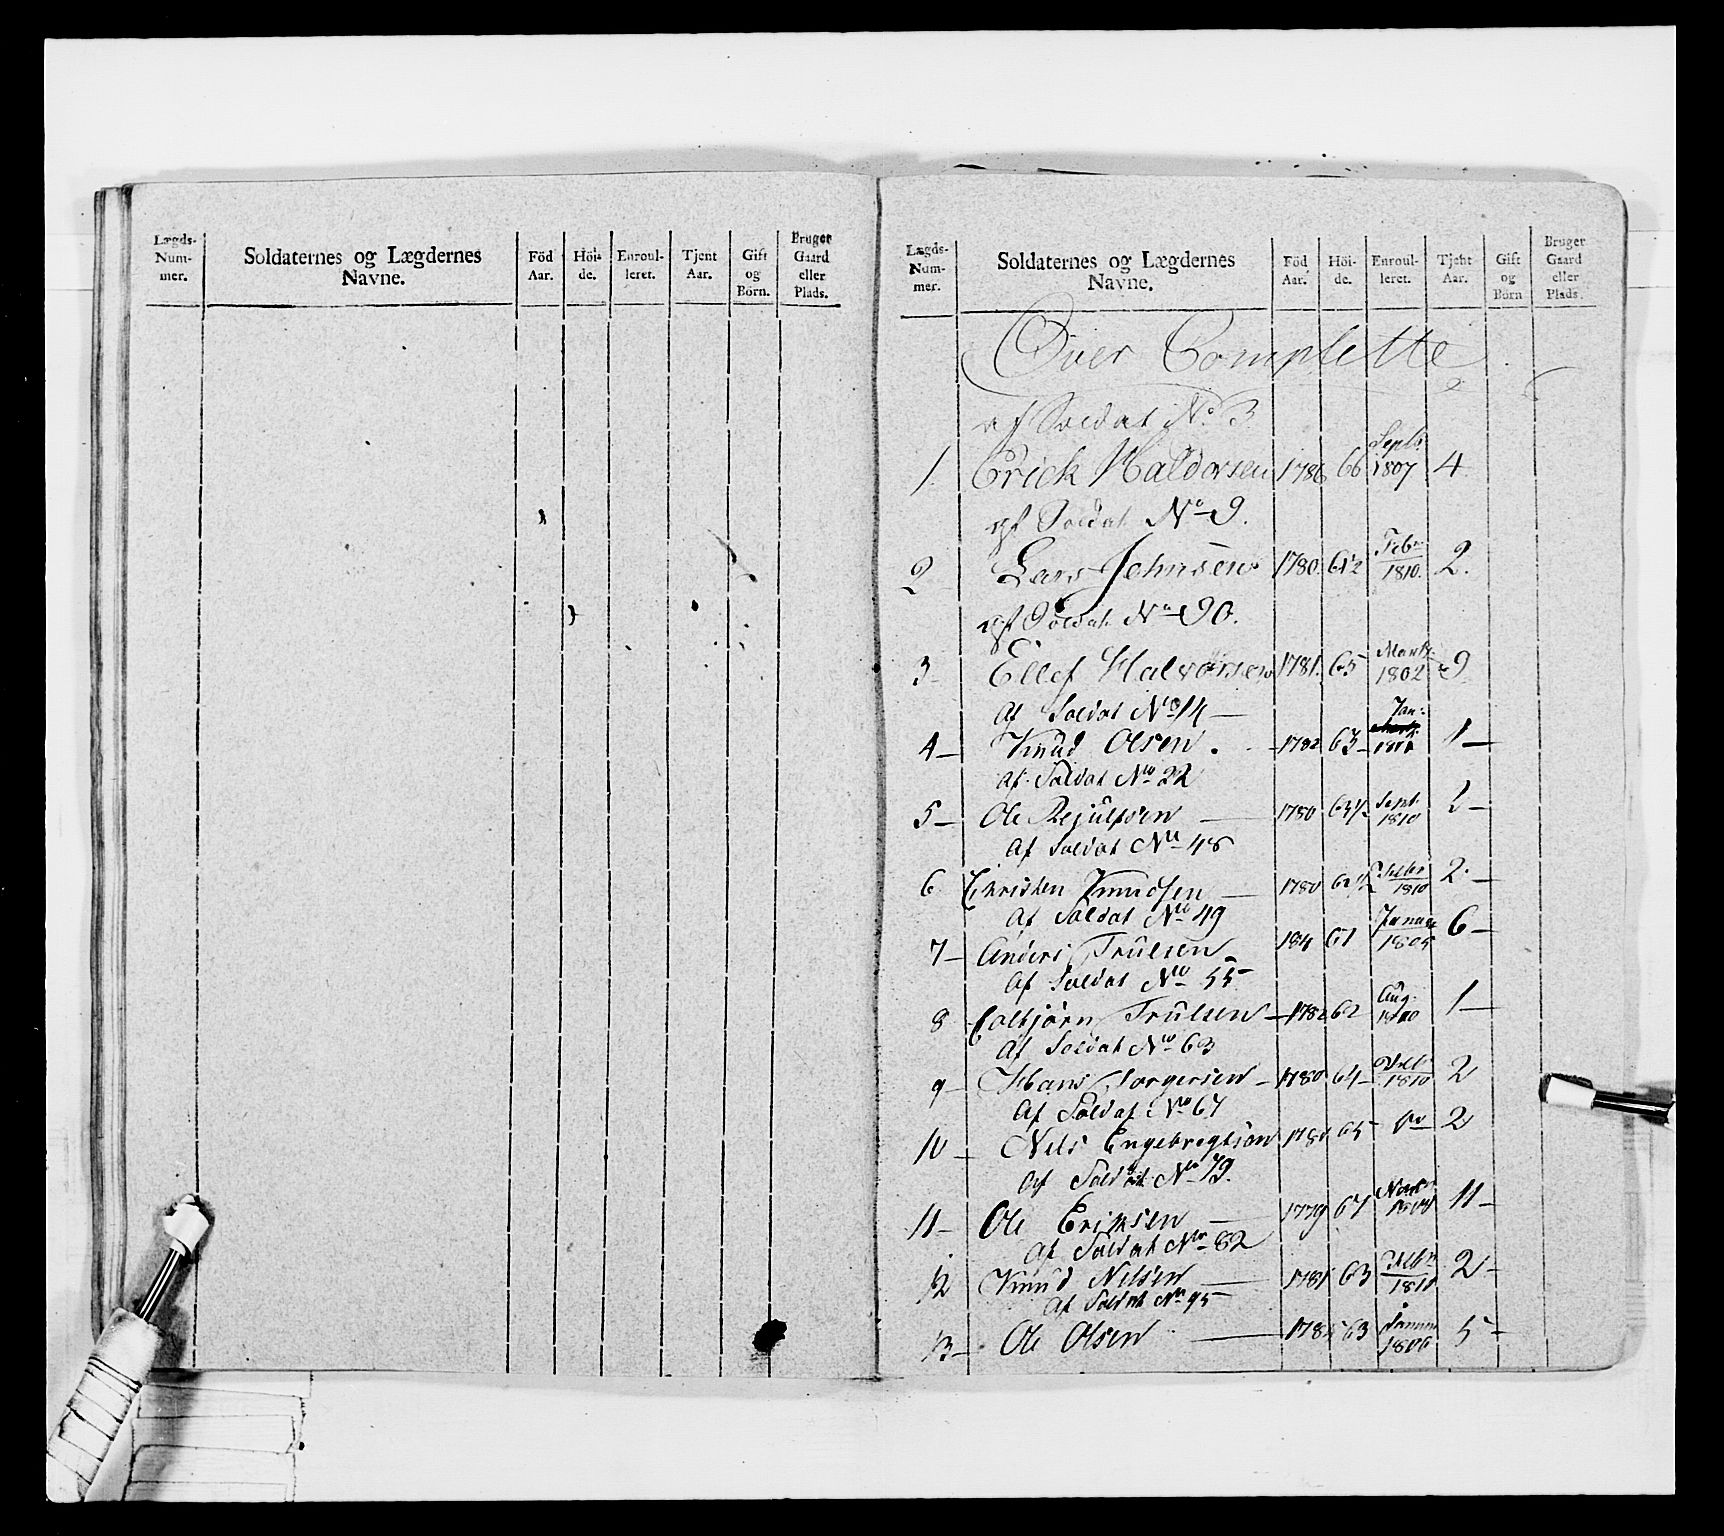 Lægds-Num-mer. Soldaternes og Lægdernes Navne. Föd Aar. Höi-de. Enroul-leret. Tjent Aar. Gift og Börn. Bruger Gaard eller Plads.
Lægds-Num-mer. Soldaternes og Lægdernes Navne. Föd Aar. Höi-de. Enroul-leret. Tjent Aar. Gift og Börn Bruger Gaard eller Plads.
Over Complette
af Soldat No 3
1. Erick Haldorsen 1786 66 Septb 1807 4
af Soldat No 9.
2 Lars Johnsen 1780. 61½ Febr 1810. 2.
af Soldat No 90.
3 Ellef Halvorsen 1781. 65 Martz 1802 9
Af Soldat No 14
4 Knud Olsen. 1782 63 Jan: 1
Af Soldat No 22
5 Ole 1780 63½ Sept. 1810
Af Soldat No 48
6 Christen Knudsen 1780 1810 2
Af Soldat No 49
7 Anders Trulsen 184 61 Januar 1805 6
Af Soldat No 55
8 Colbjørn Trulsen 62 Aug. 1810 1
Af Soldat No 63
9 Hans Torgersen 1780 64 1810 2
Af Soldat No 67
10 Nils Engebregtsen 65 2
Af Soldat No 79.
11 Ole Eriksen 1779 67 11
Af Soldat No 82
12 Knud Nilsen 63 1810 2
Af Soldat No 95
13 Ole Olsen 63 1806 5